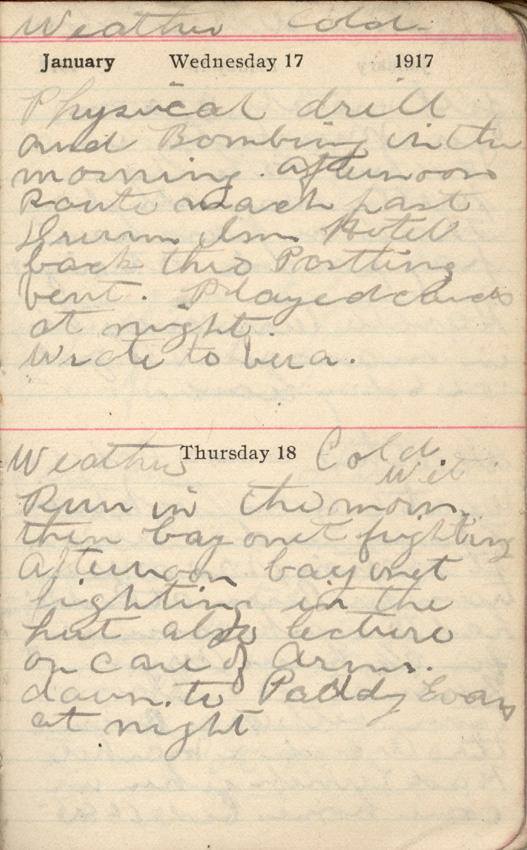 Weather Cold.
January Wednesday 17 1917
Physical drill
and Bombing in the
morning. Afternoon
Route march past
Drum Inn Hotel
back thro
bent. Played cards
at night.
Wrote to Vera.
Weather Thursday 18 Cold.
Wet
Run in the morn.
then bayonet fighting
Afternoon bayonet
fighting in the
hut also lecture
on care of Arms.
down to Paddy Evans
at night